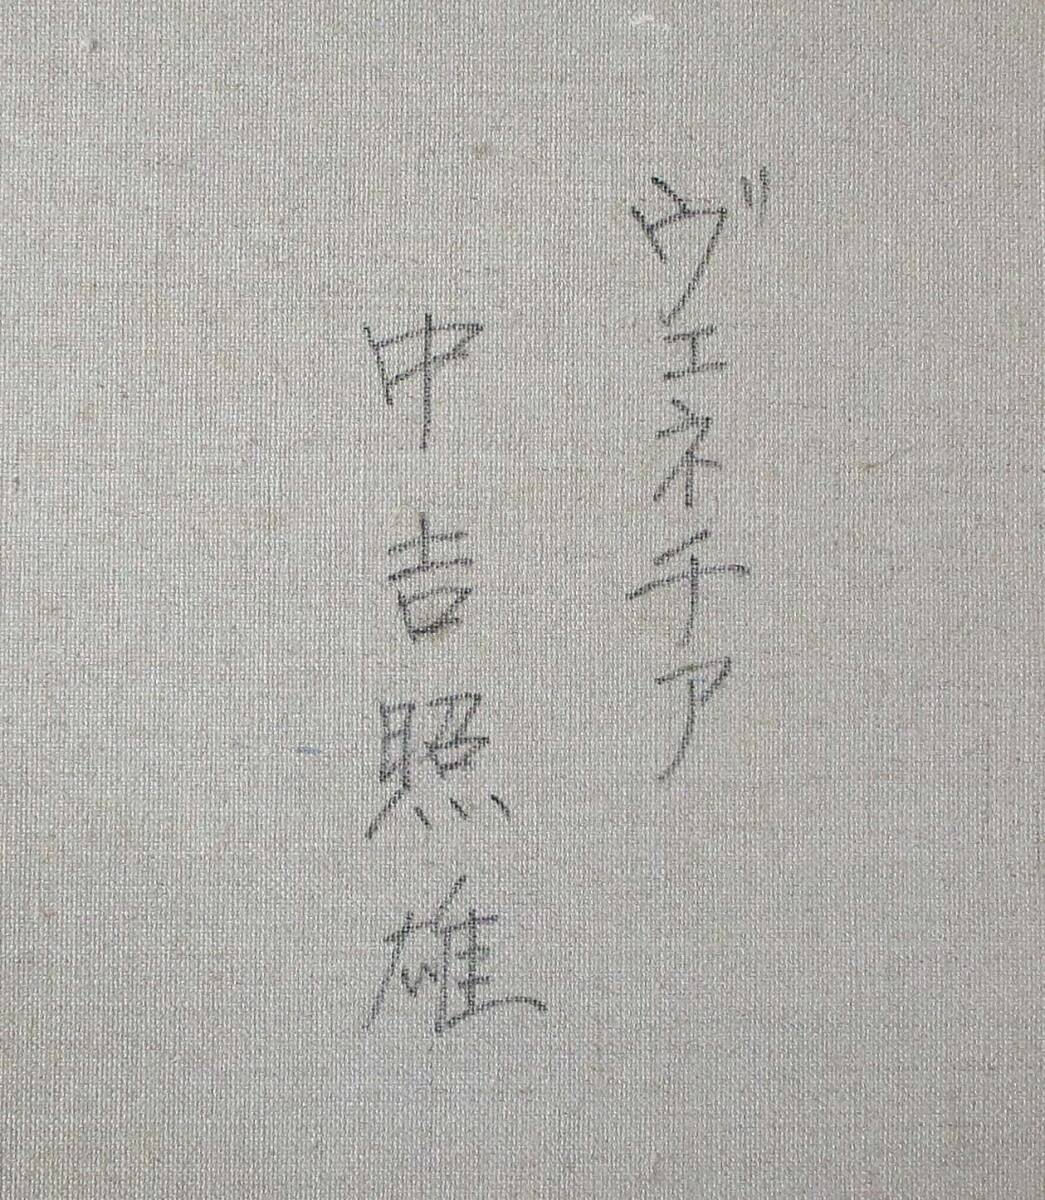 ヴェネチア
中吉照雄